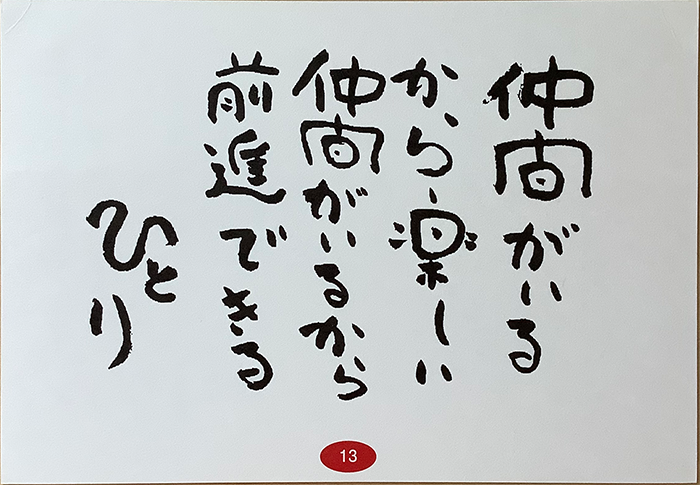 仲間がいる
から楽しい
仲間がいるから
前進できる
ひとり
13